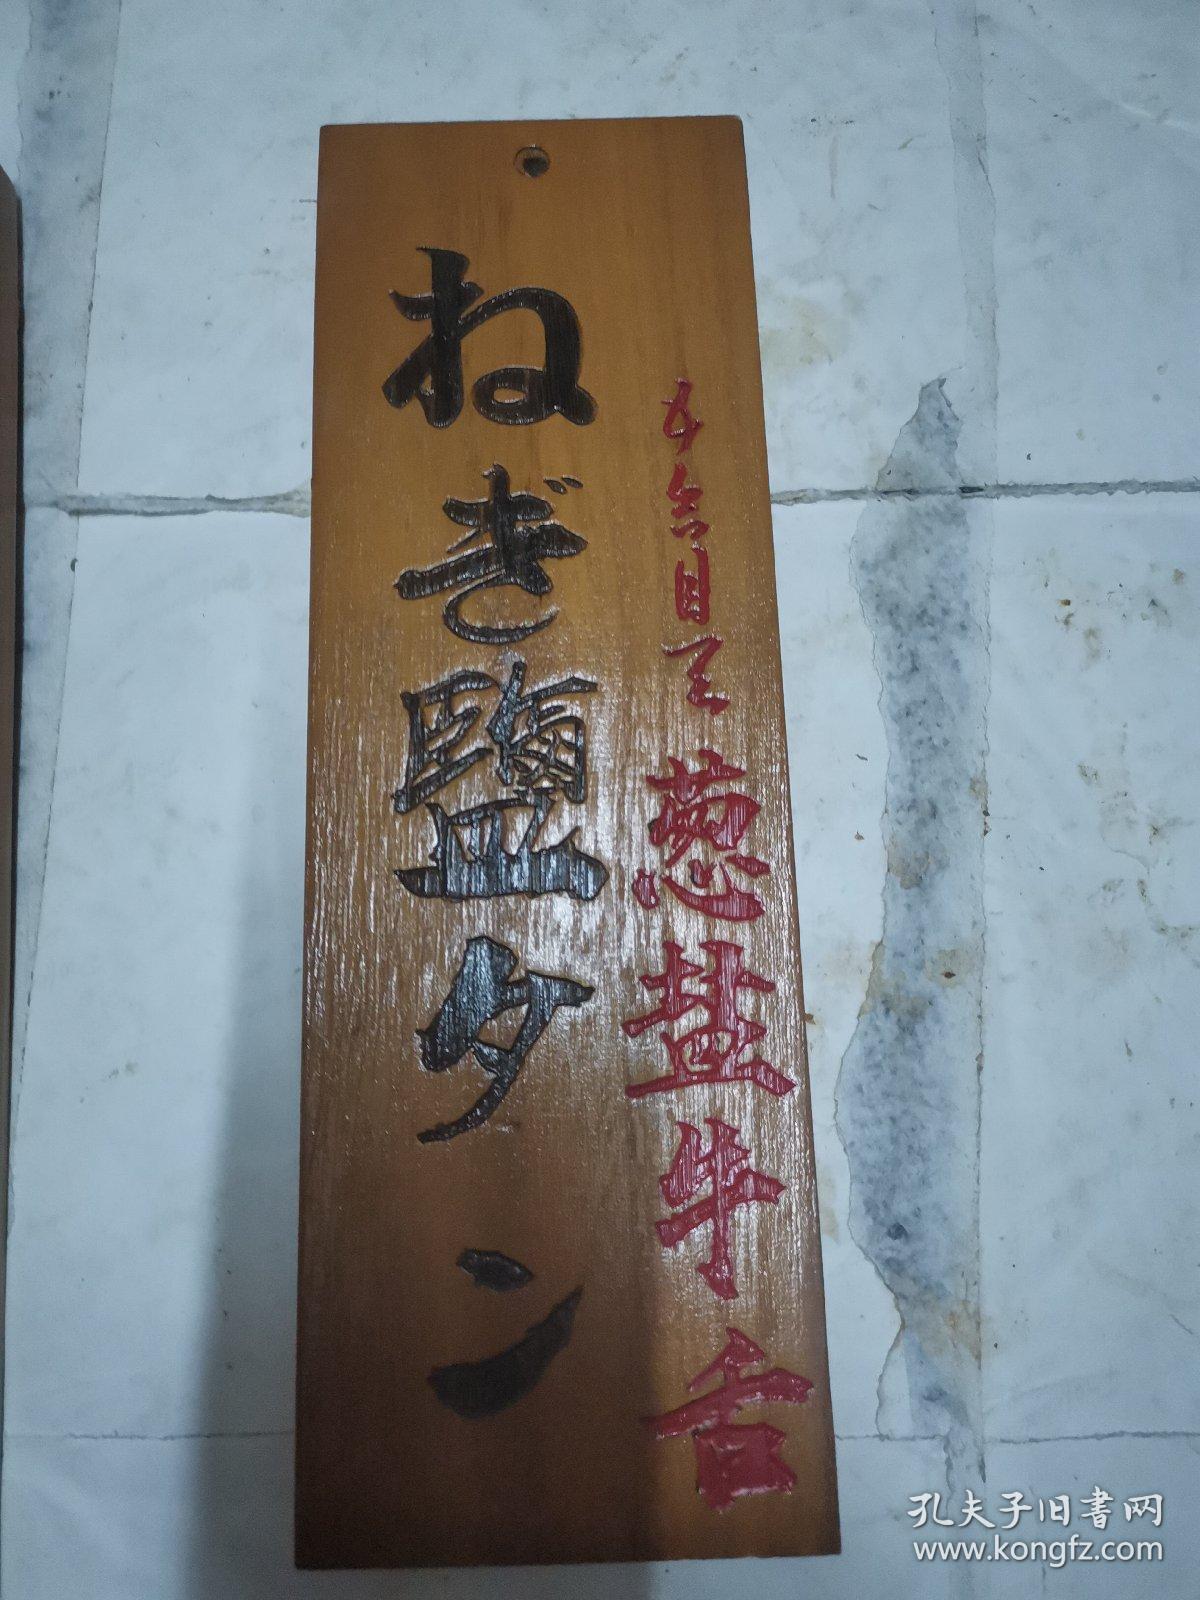 ねぎ鹽タン
葱盐牛舌
孔夫子旧書网
www.kongfz.com